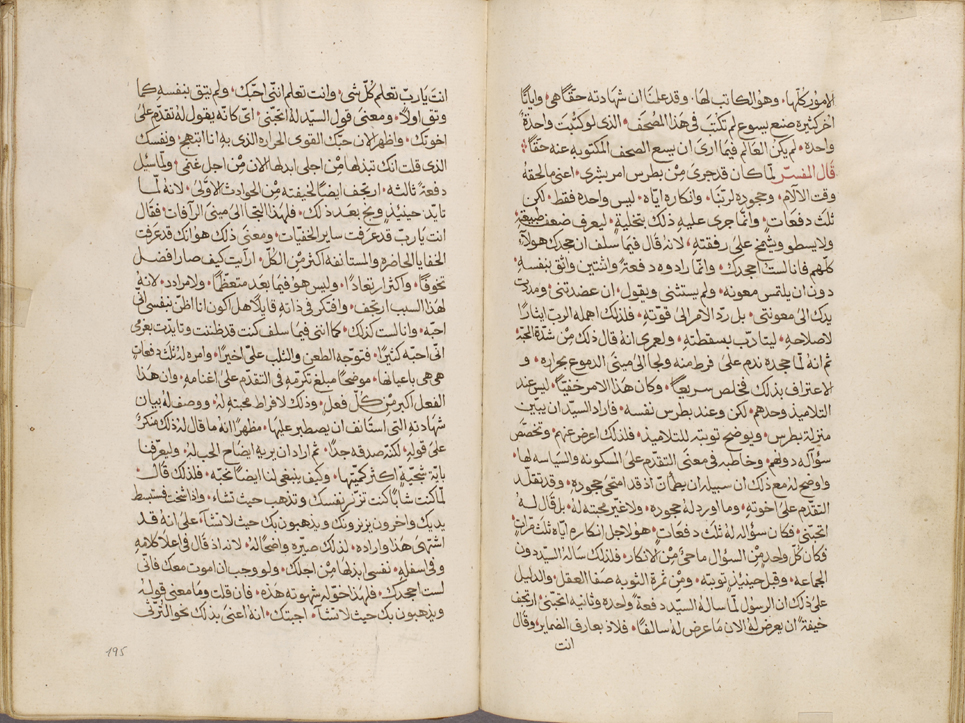 الامور كلها، وهو الكاتب لها، وقد علمنا ان شهادته حقًا هي، واياتًا
اخر كثيره صنع يسوع لم تكتب في هذا المصحف، الذي لو كتبت واحدةً
واحده، لم يكن العالم فيما ارى ان يسع الصحف المكتوبه عنه حقًا
قال المفسّر لمّا كان قد جرى من بطرس امر بشري، اعني ما لحقهُ
وقت الآلام، وجحوده لربّنا، وانكاره اياه، ليس واحده فقط، لكن
ثلث دفعات، وانّما جرى عليه ذلك بتخلية، ليعرف ضعف
ولا يسطو ويشمخ على رفقته، لانهُ قال فيما سلف ان جحدك هولآء
كلّهم فانا لست اجحدك، وانّما راددوه دفعةً واثنتين واثق بنفسهِ
دون ان يلتمس معونه، ولم يستثنى ويقول، ان عضدتني، ومددت
يدك الى معونتي، بل ردّ الامر الى قوّته، فلذلك اهمله الرب ايثارًا
لاصلاحهِ، ليتادّب بسقطتهِ، ولعمري انهُ قال ذلك من شدّة المحبّة
ثم انهُ لمّا جحده ندم على فرط منه ولجا الى مينى الدموع بحراره، و
الاعتراف بذلك فخلص سريعًا، وكان هذا الامر خفيًا، ليس عند
التلاميذ وحدهم، لكن وعند بطرس نفسه، فاراد السيّد ان يبيّن
منزلة بطرس، ويوضح توبته للتلاميذ، فلذلك اعرض عنهم، وتخصّص
سؤاله دونهم، وخاطبه في معنى التقدّم على المسكونه والسياسه لها،
واوضح لهُ مع ذلك ان سبيله ان يطمأنّ اذ قد امتحى جحوده، وقد تقلّد
التقدّم على اخوته، وما اورد لهُ جحوده، ولا عيّر محبته لهُ، بل قال لهُ
اتحبّني، فكان سؤاله لهُ ثلث دفعات، هو لاجل انكاره ايّاه ثلث مرّات
فكان كلّ واحد من السؤال ماحيًا من الانكار، فلذلك ساله السيّد دون
الجماعه، وقبل حينيذٍ توبته، ومن ثمرة التوبه صفا العقل، والدليل
على ذلك ان الرسول لمّا ساله السيّد دفعةً واحده وثانيه اتحبّني، ارتجف
خيفةً ان يعرض لهُ الان ما عرض لهُ سالفًا، فلاذ بعارف الضماير، وقال
انت
انت يا ربّ تعلم كلّ شى، وانت تعلم انّني احبّك، ولم يثق بنفسه كما
وثق اولًا، ومعنى قول السيّد لهُ اتحبّني، اى كانّه يقول لهُ تقدّم على
اخوتك، واظهر الان حبّك القوى الحراره الذي به انا ابتهج، ونفسك
الذي قلت انّك تبذلها من اجلي ابذلها الان من اجل غنمي، ولمّا سيل
دفعةً ثالثه، ارتجف ايضًا لخيفته من الحوادث الاولى، لانهُ لمّا
تايّد حينيذٍ وبّخ بعد ذلك، فلهذا التجا الى مينى الرآفات، فقال
انت يا ربّ قد عرفت ساير الخفيّات، ومعنى ذلك هو انّك قد عرفت
الخفايا الحاضره والمستانفه اكثر من الكلّ، ارايت كيف صار افضل
تخوّفًا، واكثر ارتعادًا، وليس هو فيما بعد متعظّمًا، ولا مرادد، لانهُ
لهذا السبب ارتجف، وافتكر في ذاته قايلًا، هل اكون انا اظنّ بنفسي انّي
احبّه، وانا لست كذلك، كما انني فيما سلف كنت قد ظننت وتايّدت بعزمى
انّى احبّه كثيرًا، فتوجّه الطعن والثلب علىّ اخيرًا، وامره لهُ ثلث دفعات
هى هى باعيانها، موضحًا مبلغ تكرّمهِ في التقدّم على اغنامهِ، وان هذا
الفعل اكبر من كلّ فعل، وذلك لافراط محبته لهُ، ووصف لهُ بيان
شهادته التى استانف ان يصطبر عليها، مظهرًا انهُ ما قال لهُ ذلك منكرًا
على قولهِ، لكنّه صدقه جدًا، ثم اراد ان يريهِ ايضاح الحب لهُ، وليعرّفنا
بايّة سجيّة اكثر كميّتها، وكيف ينبغي لنا ايضًا نحبّه، فلذلك قال
لمّا كنت شابًا كنت تزنّر نفسك وتذهب حيث تشاء، واذا شخت فستبسط
يديك واخرون يزنرونك ويذهبون بك حيث لا تشآء، على انهُ قد
اشتهى هذا واراده، لذلك صيّره واضحًا لهُ، لانه اذ قال في اعلا كلامهِ
وفي اسفلهِ، نفسى ابذلها من اجلك، ولو وجب ان اموت معك فانّى
لست اجحدك، فلهذا خوّله شهوته هذه، فان قلت وما معنى قولهُ
ويذهبون بك حيث لا تشآء، اجبتك، انهُ اعنى بذلك نحو الترثّى
195